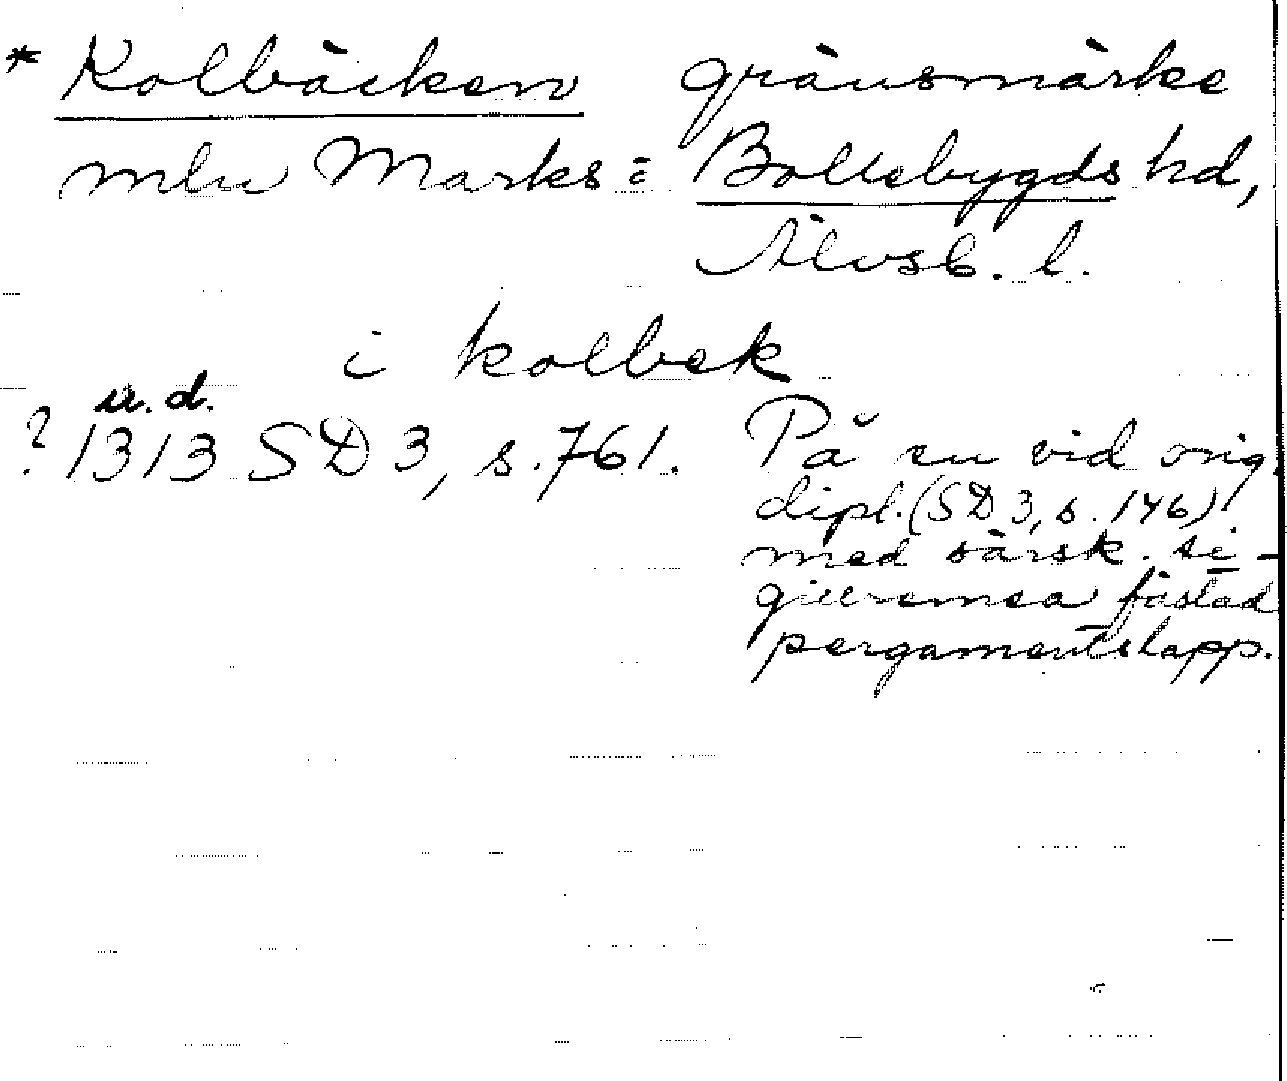 * Kolbäcken gränsmärke
mlu Marks = Bollebygds hd,
Älvsb. l.
i kolbek
u.d.
? 1313 SD 3, s.761. På en vid orig.
dipl. (SD 3, s. 146)
med särsk. si-
gillremsa fästad
pergamentslapp.